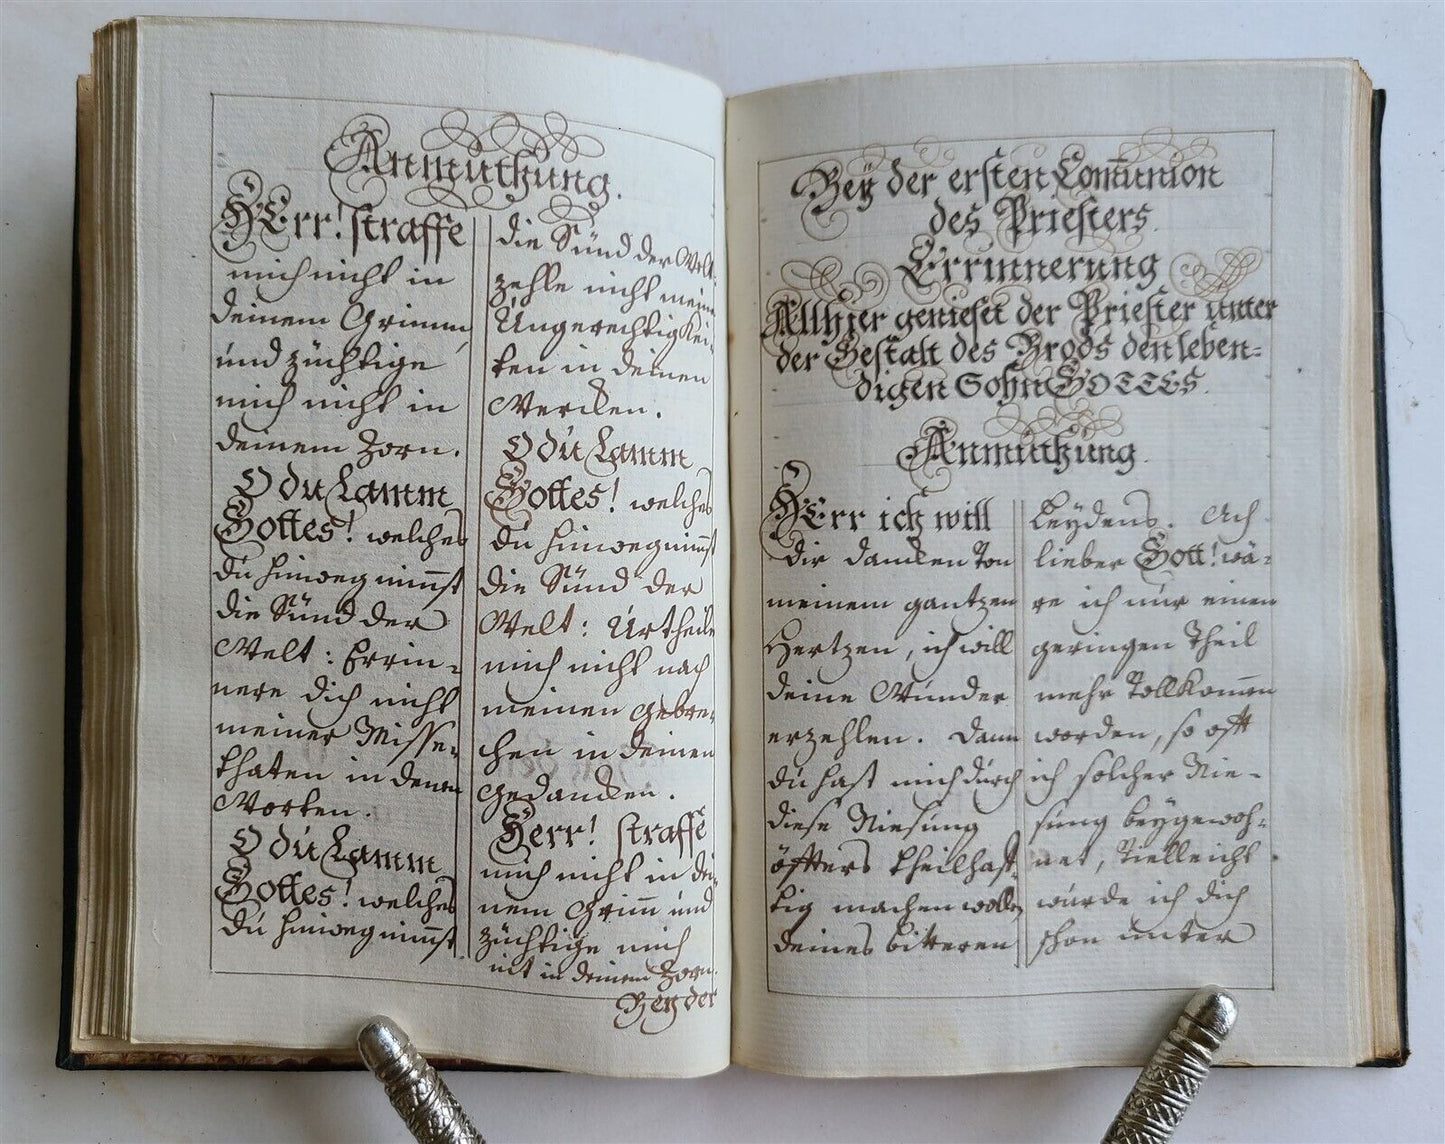 Anmuthung.
HErr! straffe
mich nicht in
deinem Grimm
und züchtige
mich nicht in
deinem Zorn.
O du Lamm
Gottes! welches
du hinweg nim̅st
die Sünd der
Welt: Errin-
nere dich nicht
meiner Misse-
thaten in denen
Worten.
O du Lamm
Gottes! welches
du hinweg nim̅st
die Sünd der Welt
zehle nicht meine
Ungerechtigkei-
ten in deinen
Wercken.
O du Lamm
Gottes! welches
du hinwegnim̅st
die Sünd der
Welt: Urtheile
mich nicht nach
meinen gebre-
chen in deinen
gedancken.
Herr! straffe
mich nicht in dei-
nem Grim̅ und
züchtige mich
nit in deinem Zorn.
Bey der
Bey der ersten Com̅union
des Priesters.
Errinnerung
Allhier genieset der Priester unter
der Gestalt des Brods den leben=
digen Sohn GOTTES.
Anmuthung.
HErr ich will
dir dancken von
meinem gantzen
Hertzen, ich will
deine Wunder
erzehlen. Dann
du hast mich durch
diese Niesung
öffters theilhaff-
tig machen wollen
deines bitteren
Leydens. Ach
lieber Gott! wä-
re ich nur einen
geringen Theil
mehr vollkom̅en
worden, so offt
ich solcher Nie-
sung beygewoh-
net, vielleicht
würde ich dich
schon unter